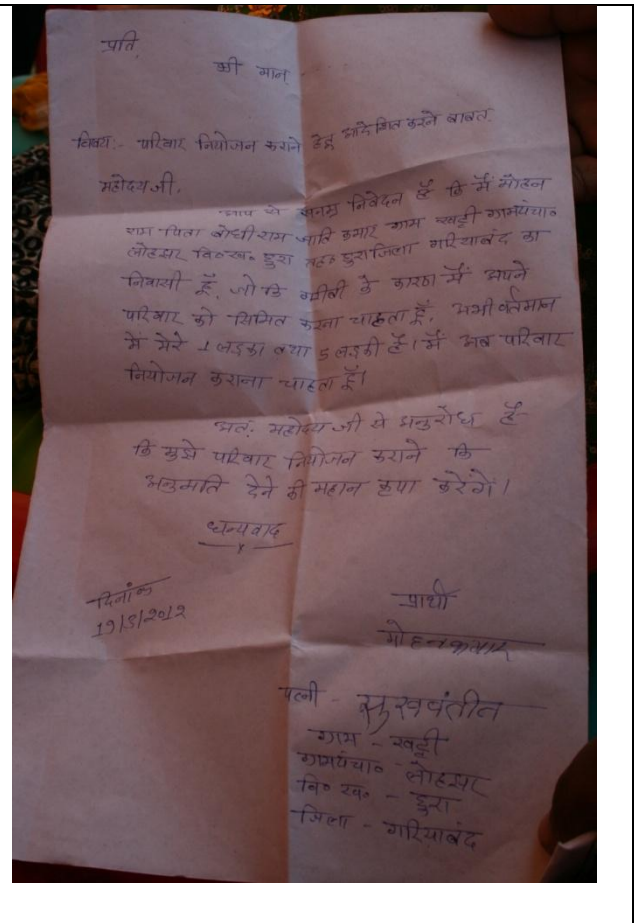 प्रति,
श्री मान्
विषय:- परिवार नियोजन कराने हेतु आदेशित करने बाबत.
महोदय जी,
आप से सनम्र निवेदन है कि मैं मोहन
राम पिता बोधीराम जाति कमार ग्राम खट्टी ग्रामपंचा०
लोहझर वि०ख० छुरा तह० छुरा जिला गरियाबंद का
निवासी हूँ, जो कि गरीबी के कारण मैं अपने
परिवार को सिमित करना चाहता हूँ, अभी वर्तमान
में मेरे 1 लड़का तथा 5 लड़की है। मैं अब परिवार
नियोजन कराना चाहता हूँ।
अतः महोदय जी से अनुरोध है
कि मुझे परिवार नियोजन कराने कि
अनुमति देने की महान कृपा करेंगे।
धन्यवाद
दिनांक
19/5/2012
प्रार्थी
मोहन कमार
पत्नी - सुखवंतीन
ग्राम - खट्टी
ग्रामपंचा० - लोहझर
वि० ख० - छुरा
जिला - गरियाबंद